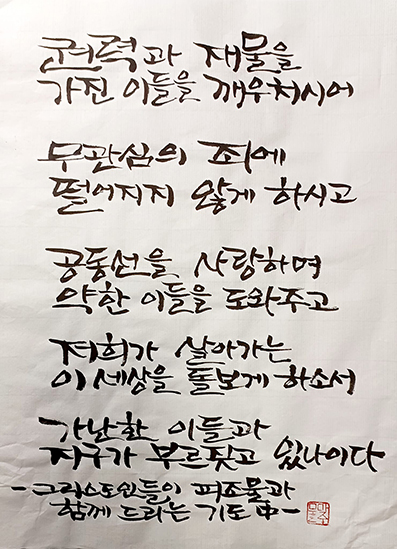 권력과 재물을
가진 이들을 깨우치시어
무관심의 죄에
떨어지지 않게 하시고
공동선을 사랑하며
약한 이들을 도와주고
저희가 살아가는
이 세상을 돌보게 하소서
가난한 이들과
지구가 부르짖고 있나이다
-그리스도인들이 피조물과
함께 드리는 기도 中-